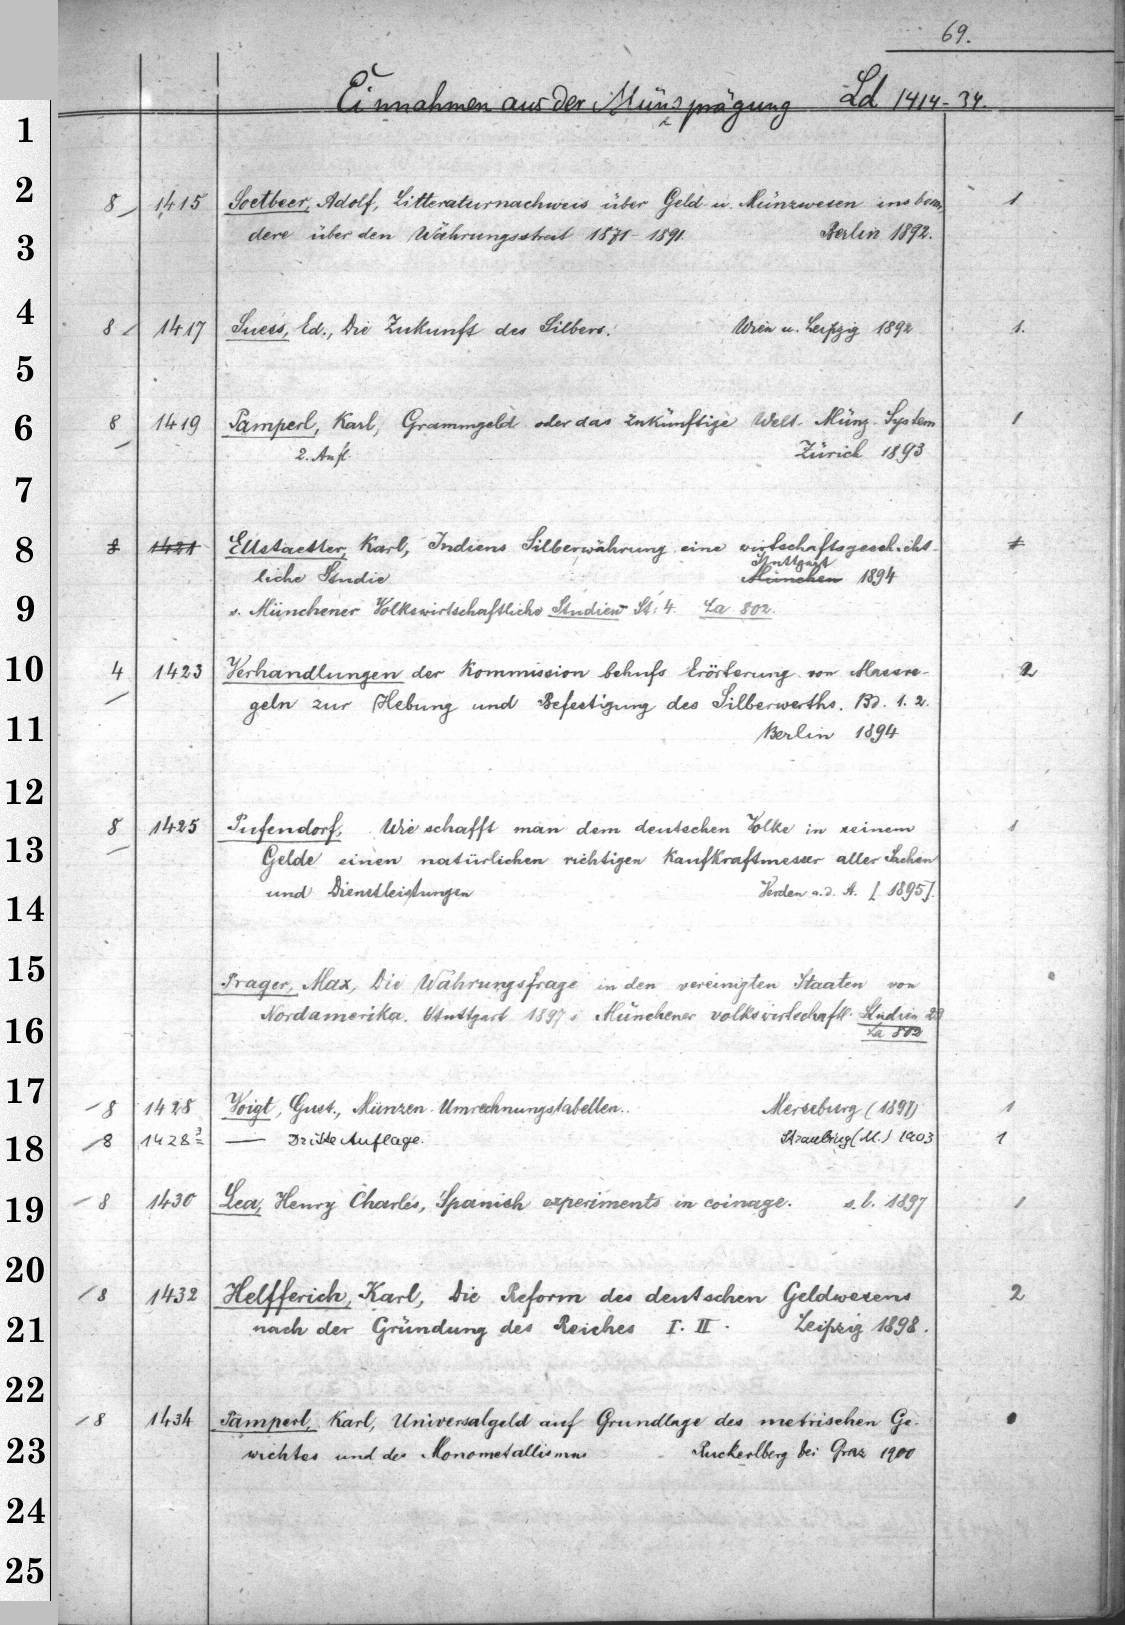 69.
Einnahmen aus der Münzprägung Ld 1414-34.
1
2
3
4
5
6
7
8
9
10
11
12
13
14
15
16
17
18
19
20
21
22
23
24
25
8 1415 Soetbeer, Adolf, Litteraturnachweis über Geld- u. Münzwesen insbeson- 1
dere über den Währungsstreit 1871-1891. Berlin 1892.
8 1417 Suess, Ed., Die Zukunft des Silbers. Wien u. Leipzig 1892 1.
8 1419 Pamperl, Karl, Grammgeld oder das zukünftige Welt-Münz-System 1
2. Aufl. Zürich 1893
8 1421 Ellstaetter, Karl, Indiens Silberwährung eine wirtschaftsgeschicht- 1
Stuttgart
liche Studie München 1894
s. Münchener Volkswirtschaftliche Studien St. 4. La 802.
4 1423 Verhandlungen der Kommission behufs Erörterung von Massre- 2
geln zur Hebung und Befestigung des Silberwerths. Bd. 1. 2.
Berlin 1894
8 1425 Pufendorf, Wie schafft man dem deutschen Volke in seinem 1
Gelde einen natürlichen richtigen Kaufkraftmesser aller Sachen
und Dienstleistungen Verden a.d. A. [1895].
Prager, Max, Die Währungsfrage in den vereinigten Staaten von
Nordamerika. Stuttgart 1897 s Münchener volkswirtschaftl. Studien 23
La 802
8 1428 Voigt, Gust., Münzen-Umrechnungstabellen.. Merseburg (1897) 1
8 1428 a — Dritte Auflage. 1903 1
8 1430 Lea, Henry Charles, Spanish experiments in coinage. s. l. 1897 1
8 1432 Helfferich, Karl, Die Reform des deutschen Geldwesens 2
nach der Gründung des Reiches I. II. Leipzig 1898.
8 1434 Pamperl, Karl, Universalgeld auf Grundlage des metrischen Ge-
wichtes und des Monometallismus Ruckerlberg bei Graz 1900